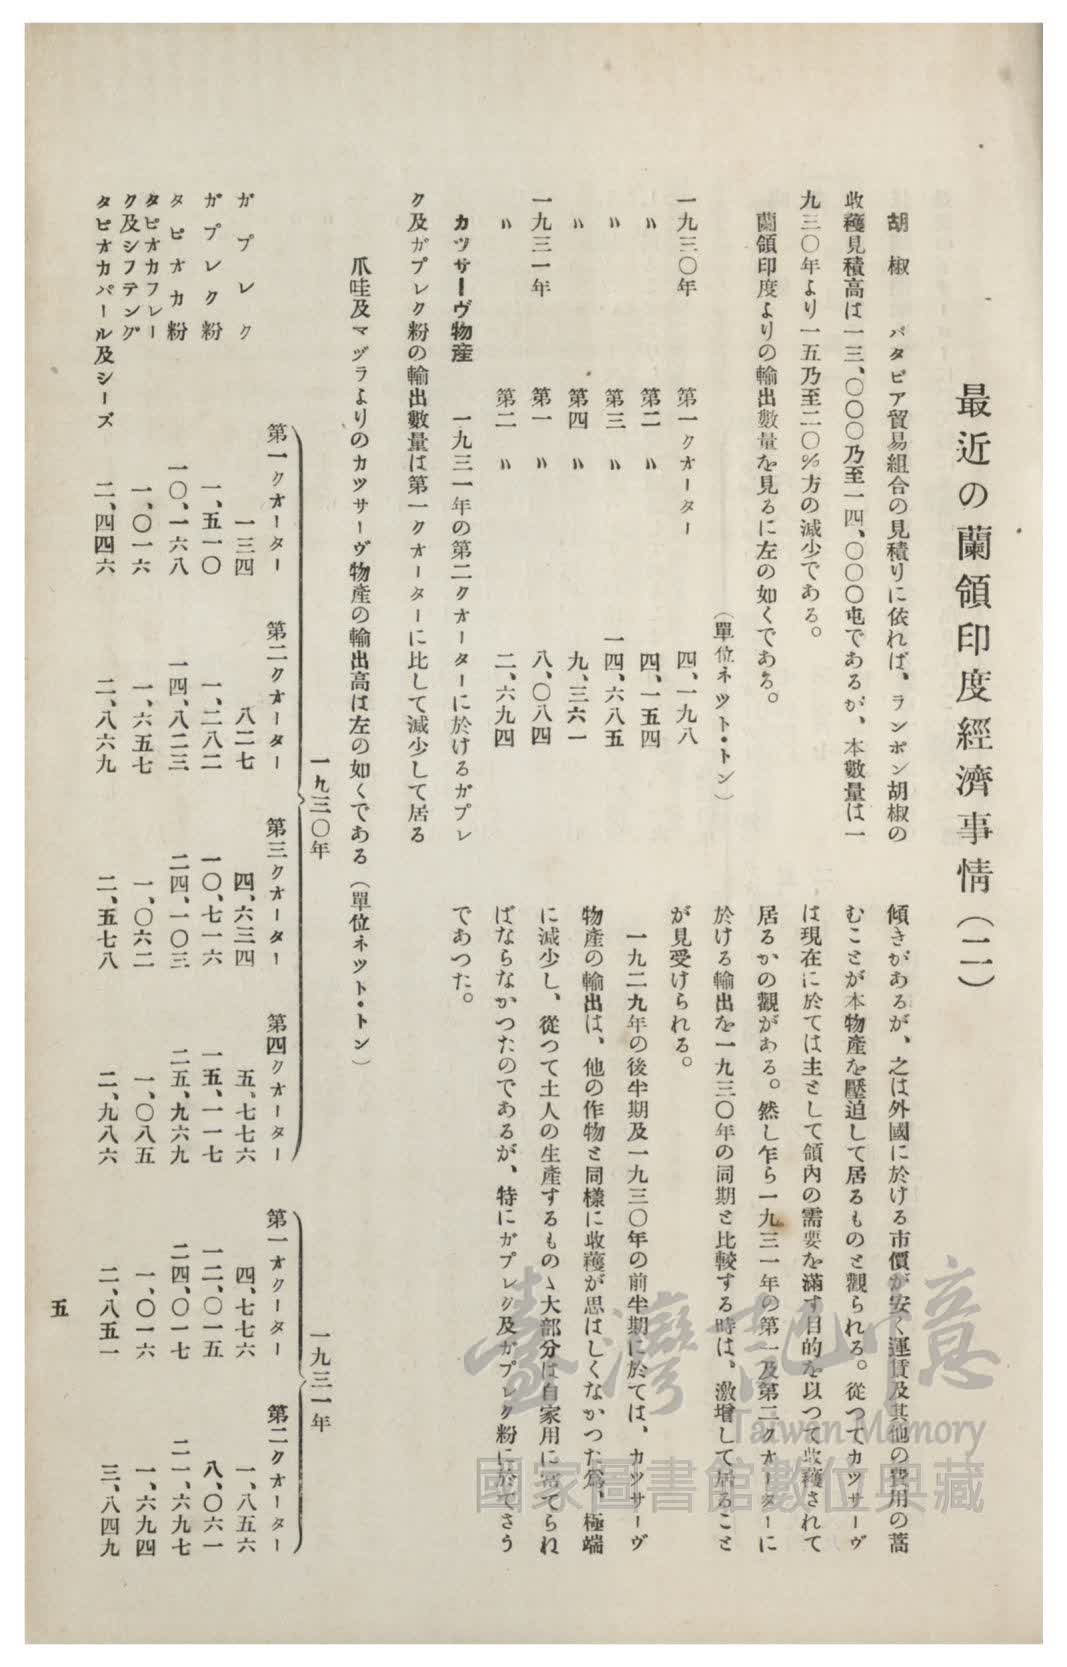 最近の蘭領印度經濟事情(二)
胡椒 バタビア貿易組合の見積りに依れば、ランポン胡椒の
收穫見積高は一三、〇〇〇乃至一四、〇〇〇屯であるが、本數量は一
九三〇年より一五乃至二〇%方の減少である。
蘭領印度よりの輸出數量を見るに左の如くである。
(單位ネット・トン)
一九三〇年 第一クオーター 四、一九八
〃 第二 〃 四、一五四
〃 第三 〃 一四、六八五
〃 第四 〃 九、三六一
一九三一年 第一 〃 八、〇八四
〃 第二 〃 二、六九四
カツサーヴ物產 一九三一年の第二クオーターに於けるガプレ
ク及ガプレク粉の輸出數量は第一クオーターに比して減少して居る
傾きがあるが、之は外國に於ける市價が安く運賃及其他の費用の蓄
むことが本物產を壓迫して居るものと觀られる。從つてカツサーヴ
は現在に於ては主として領內の需要を滿す目的を以つて收穫されて
居るかの觀がある。然し乍ら一九三一年の第一及第二クオーターに
於ける輸出を一九三〇年の同期と比較する時は、激增して居ること
が見受けられる。
一九二九年の後半期及一九三〇年の前半期に於ては、カツサーヴ
物產の輸出は、他の作物と同樣に收穫が思はしくなかつた爲、極端
に減少し、從つて土人の生產するものゝ大部分は自家用に當てられ
ばならなかつたのであるが、特にガプレク及ガプレク粉に於てさう
であつた。
爪哇及マヅラよりのカツサーヴ物產の輸出高は左の如くである(單位ネット・トン)
一九三〇年 一九三一年
第一クオーター 第二クオーター 第三クオーター 第四クオーター 第一オクーター 第二クオーター
ガプレク 一三四 八二七 四、六三四 五、七七六 四、七七六 一、八五六
ガプレク粉 一、五一〇 一、二八二 一〇、七一六 一五、一一七 一二、〇一五 八、〇六一
タピオカ粉 一〇、一六八 一四、八二三 二四、一〇三 二五、九六九 二四、〇一七 二一、六九七
タピオカフレー
ク及シフテング 一、〇一六 一、六五七 一、〇六二 一、〇八五 一、〇一六 一、六九四
タピオカパール及シーズ 二、四四六 二、八六九 二、五七八 二、九八六 二、八五一 三、八四九
五
臺灣記憶
Taiwan Memory
國家圖書館數位典藏